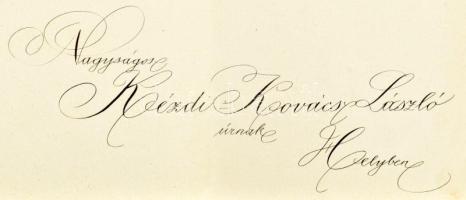 Nagyságos
Kézdi-Kovács László
úrnak
Helyben